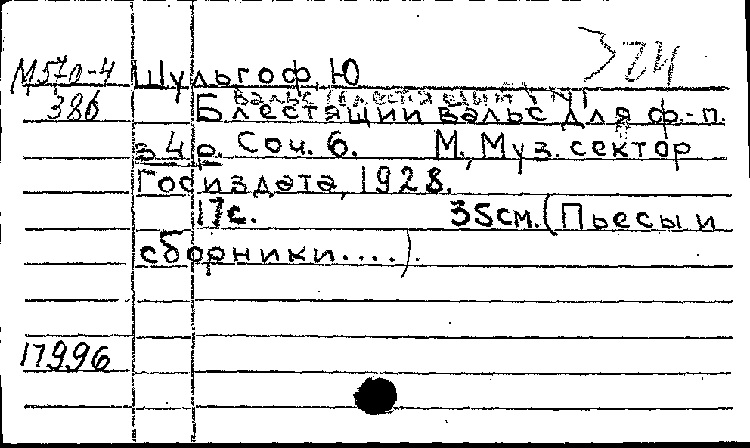 М570-4 Шульгоф, Ю
324
386
вальс (блестящий)
Блестящий вальс для ф.-п.
в 4 р. Соч. 6. М., Муз. сектор
Госиздата, 1928.
17с. 35см. (Пьесы и
сборники....).
17996